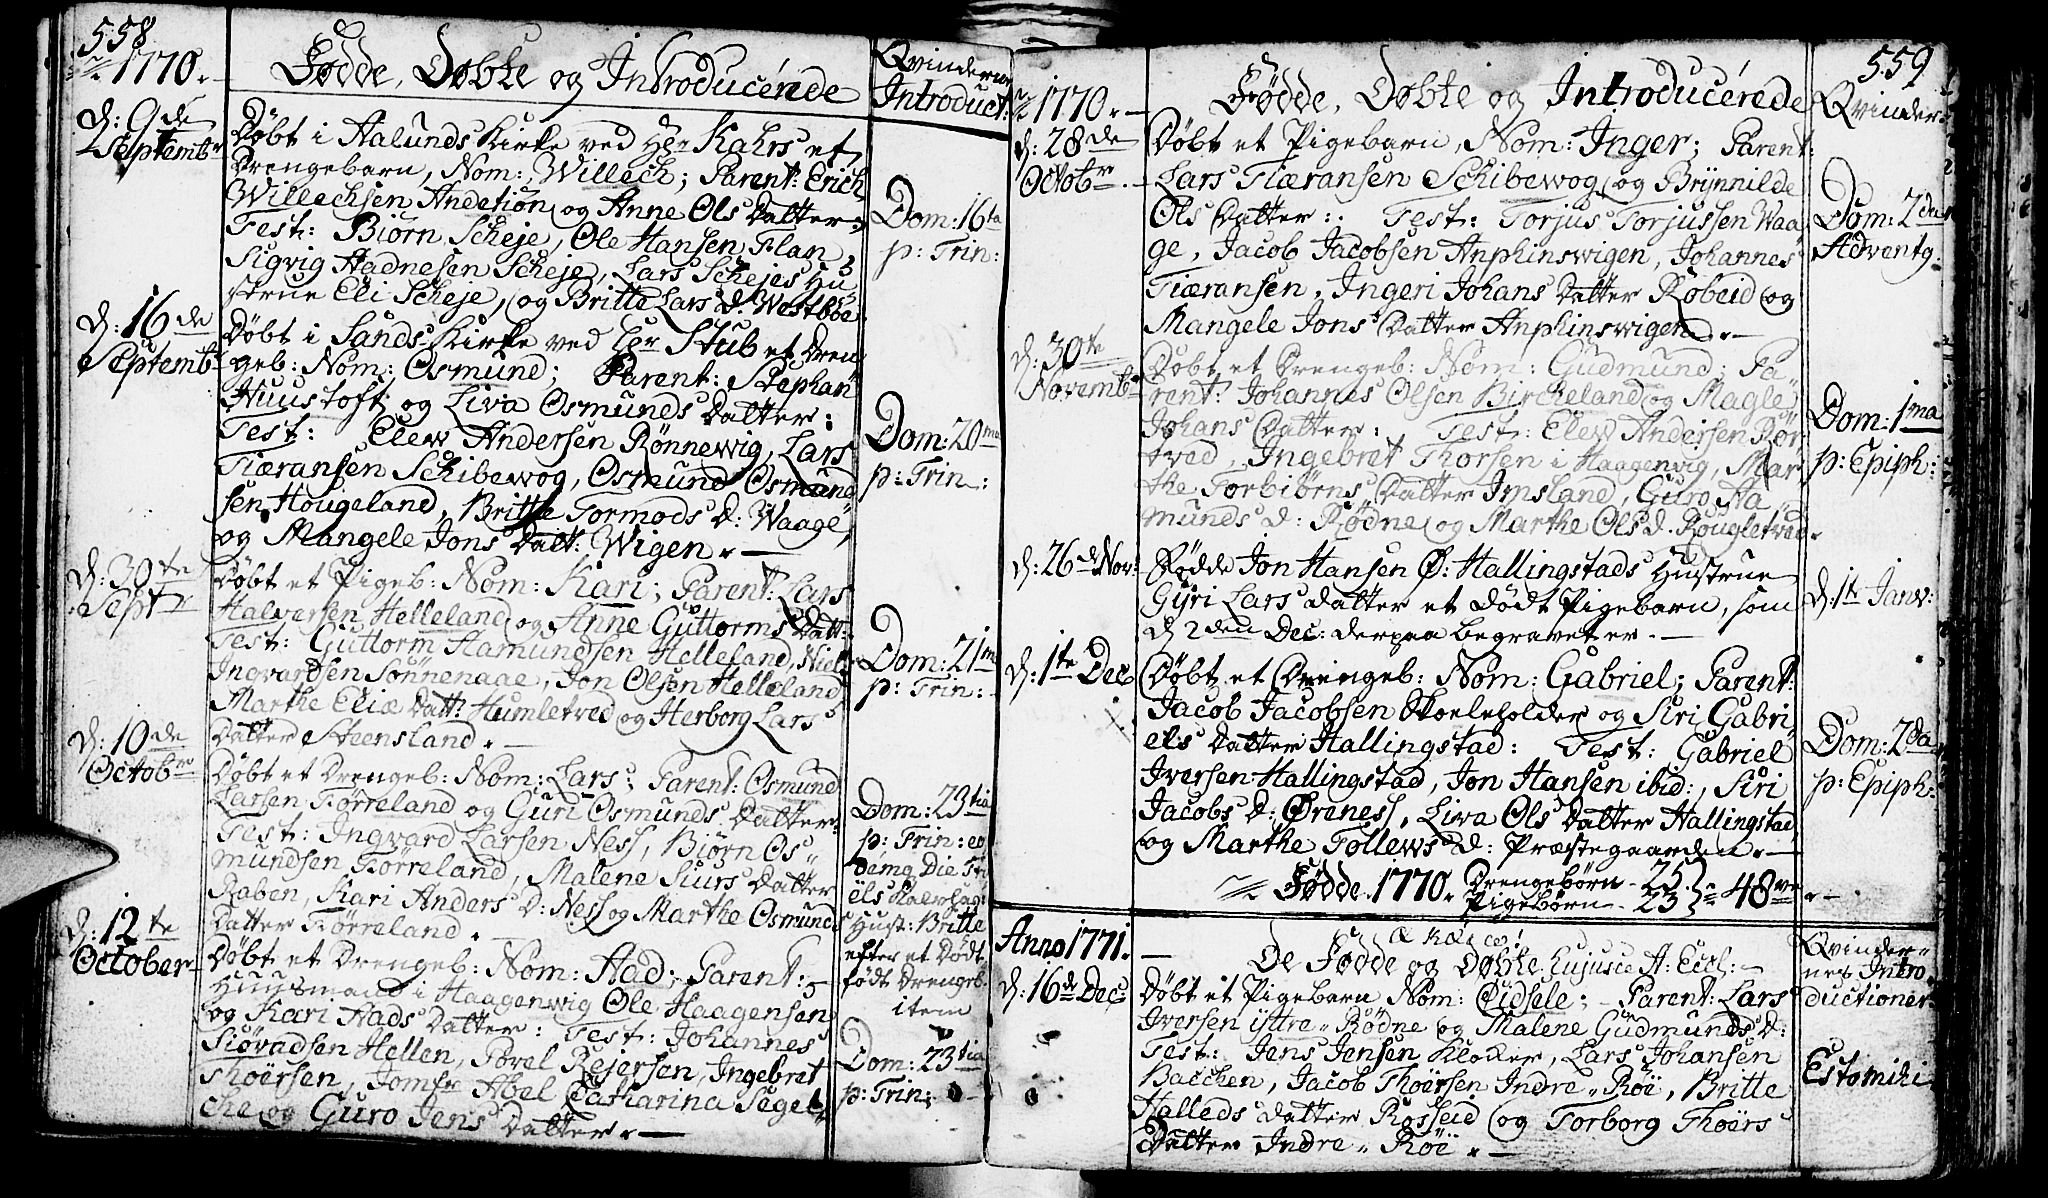 558
1770.
Fødde, Døbte og Introducérede
Qvinderne
Introduct:
d: 9de
Septembr
Døbt i Aalunds Kirke ved Hr Kahrs et
Drengebarn, Nom: Willech; Parent: Erich
Willechsen Andetion og Anne Ols Datter:
Test: Biørn Scheje, Ole Hansen Flan,
Sigvig Aadnesen Scheje, Lars Schejes Hu
strue Eli Scheje, og Britte Lars d. Westbøe
Dom: 16ta
p: Trin:
d: 16de
Septemb:
Døbt i Sands Kirke ved Hr Stub et Dren
geb: Nom: Osmund; Parent: Stephan
Huustoft og Liva Osmunds Datter:
Test: Elew Andersen Rønnewig, Lars
Tiæransen Schibewog, Osmund Osmund
sen Hougeland, Britte Tormods d: Waage,
og Mangele Jons Datt: Wigen.
Dom: 20ma
p: Trin:
d: 30te
Septr
Døbt et Pigeb: Nom: Kari; Parent: Lars
Halversen Helleland og Anne Guttorms Datt:
Test: Guttorm Hamundsen Helleland, Niels
Ingvardsen Sønnenaae, Jon Olsen Helleland
Marthe Eliæ Datt: Humletved og Herborg Lars
Datter Steensland.
Dom: 21ma
p: Trin:
d: 10de
Octobr
Døbt et Drengeb: Nom: Lars; Parent: Osmund
Larsen Førreland og Guri Osmunds Datter:
Test: Ingvard Larsen Ness, Biørn Os"
mundsen Førreland, Malene Siurs Datter
Raben, Kari Anders D: Ness og Marthe Osmunds
Datter Førreland.
Dom: 23tia
p: Trin: eo
demq Die
Hust: Britte
efter et Dødt
født Drengeb.
item
d: 12te
October
Døbt et Drengeb: Nom: Aad; Parent:
Huusmand i Haagenwig Ole Haagensen
og Kari Aads Datter: Test: Johannes
Siøvadsen Hellen, Povel Rejersen, Ingebret
Thoersen, Jomfr Abel Catharina Segel
che og Guro Jens Datter.
Dom: 23tia
p: Trin:
559
1770.
Fødde, Døbte og Introducérede
Qvinder
d: 28de
Octobr.
Døbt et Pigebarn, Nom: Inger; Parent:
Lars Tiæransen Schibewog og Brynnilde
Ols Datter: Test: Torjus Torjussen Waa
ge, Jacob Jacobsen Anphinswigen, Johannes
Tiæransen, Ingeri Johans Datter Røbeid og
Mangele Jons Datter Anphinswigen.
Dom: 2da
Adventq.
d: 30te
Novemb:
Døbt et Drengeb: Nom: Gudmund; Pa"
rent: Johannes Olsen Bircheland og Magle
Johans Datter: Test: Elew Andersen Rør
tved, Ingebret Thorsen i Haagenvig, Mar
the Torbiørns Datter Imsland, Guro Aa"
munds d: Rødne og Marthe Ols d. Rougletved.
Dom: 1ma
p: Epiph:
d: 26d Nov:
Fødde Jon Hansen Ø: Hallingstads Hustrue
Gyri Lars Datter et dødt Pigebarn, som
d 2den Dec: derpaa begravet er.
d: 1te Janv:
d: 1te Dec
Døbt et Drengeb: Nom: Gabriel; Parent:
Jacob Jacobsen Skoeleholder og Siri Gabri
els Datter Hallingstad: Test: Gabriel
Iversen Hallingstad, Jon Hansen ibid:, Siri
Jacobs D: Ørenes, Liva Ols Datter Hallingstad
og Marthe Tollews D: Præstegaarden.
Dom: 2da
p: Epiph:
Fødde 1770. Drengebørn - 25. Pigebørn - 23 = 48ve
Anno 1771.
De Fødde og Døbte hujusce A: Eccl:
Qvinder-
nes Intro
ductioner
d: 16de Dec:
Døbt et Pigebarn Nom: Eidsele; Parent: Lars
Iversen ijttre Rødne og Malene Gudmunds D:
Test: Jens Jensen Kloker, Lars Johansen
Bacchen, Jacob Thoersen Indre Røe, Britte
Halleds Datter Rosseid og Torborg Thoers
Datter Indre Røe.
Estomihi